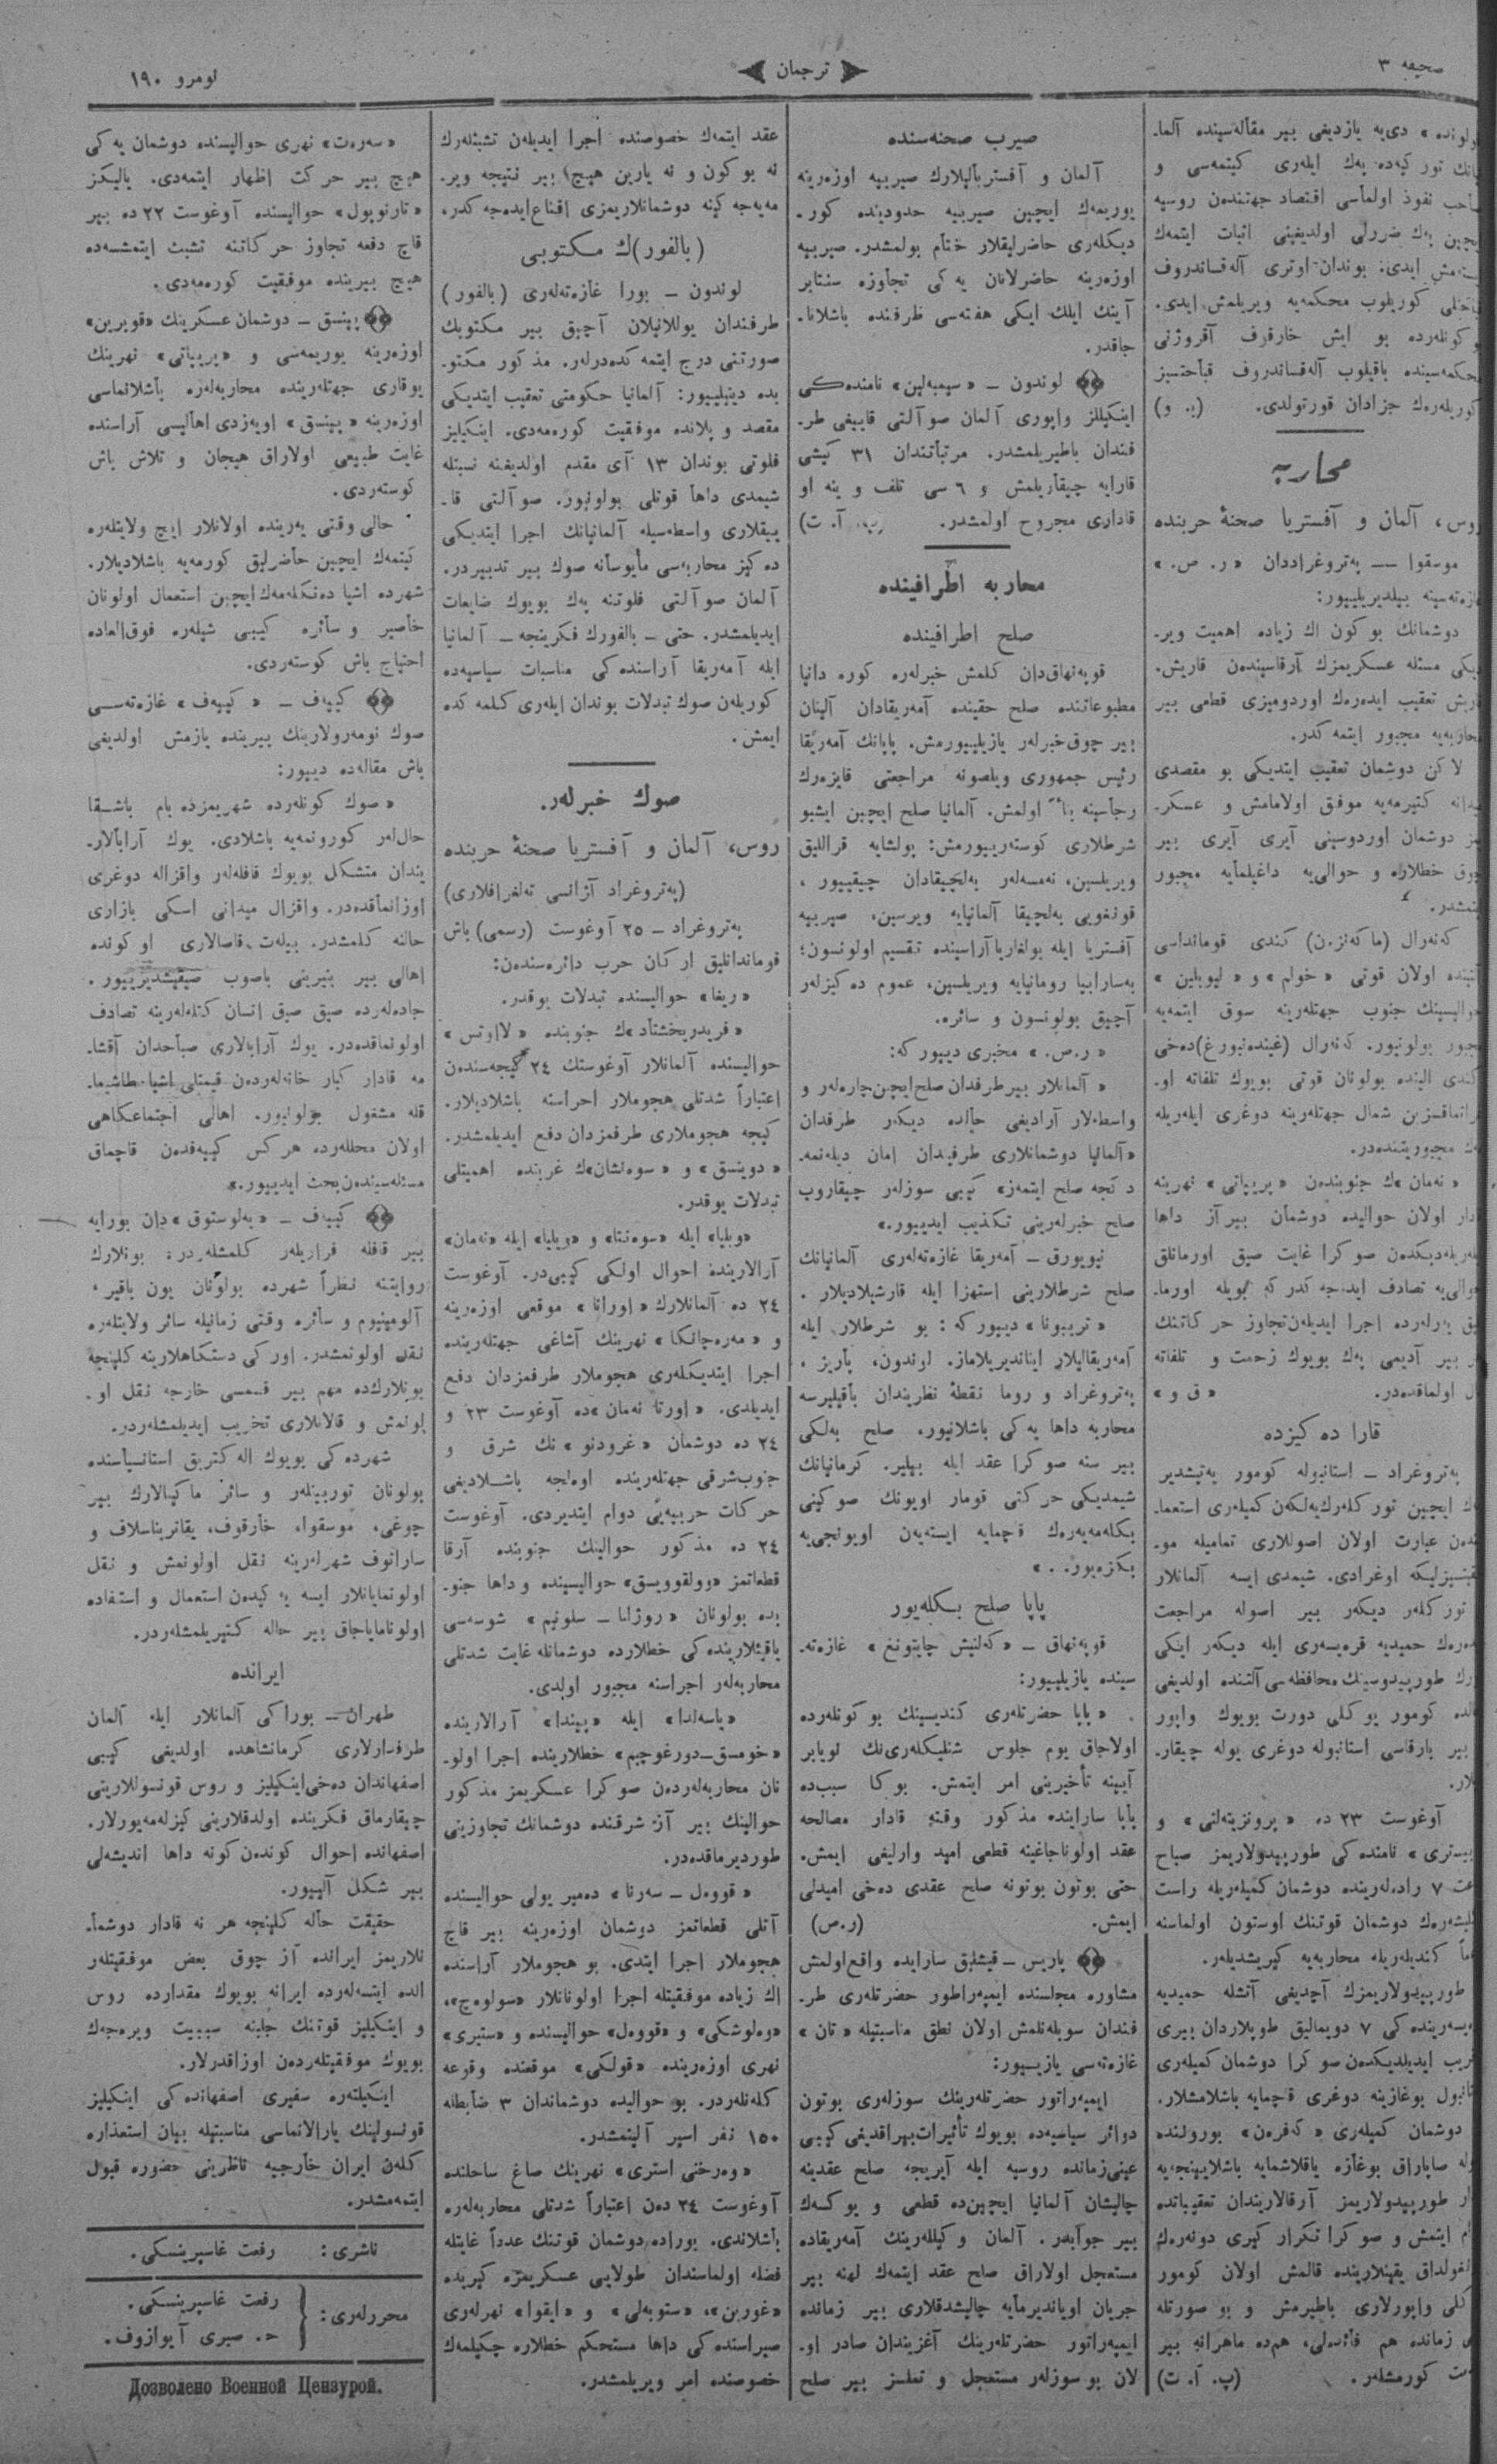 صحیفه ۳
ترجمان
نومرو ۱۹۰
دی‌یه یازدیغی بیر مقاله‌سینده آلما-
تورکیه‌ده یه‌ك ایله‌ری کیتمه‌سی و
نفوذ اولماسی اقتصاد جهتندن روسیه
ایدی. بوندان اوتری آله‌قساندروف
کوریلوب محکمه‌یه ویریلمش ایدی.
کونلرده بو ایش خارقوف آقروژنی
باقیلوب آله‌قساندروف قباحتسیز
کوریله‌رك جزادان قورتولدی. (ی. و)
محاربه
روس، آلمان و آفستریا صحنهٔ حربنده
موسقوا — په‌تروغراددان « ر. ص. »
بیلدیریلییور:
دوشمانك بو کون اك زیاده اهمیت ویر-
دیکی مسئله عسکریمزك آرقاسیندن قاریش-
تعقیب ایده‌رك اوردومیزی قطعی بیر
محاربه‌یه مجبور ایتمه کدر.
لاکن دوشمان تعقیب ایتدیکی بو مقصدی
کتیرمه‌یه موفق اولامامش و عسکر-
دوشمان اوردوسینی آیری آیری بیر
خطلاره و حوالی‌یه داغیلمایه مجبور
که‌نه‌رال (ماکه‌نزن) کندی قومانداسی
اولان قوتی « خولم » و « لیوبلین »
جنوب جهتلرینه سوق ایتمه‌یه
مجبور بولونیور. که‌نه‌رال (غینده‌نبورغ) ده‌خی
کندی الینده بولونان قوتی بویوك تلفاته او-
شمال جهتلرینه دوغری ایله‌ریله
مجبوریتنده‌در.
« نه‌مان »ك جنوبندن « پریپاتی » نهرینه
اولان حوالیده دوشمان بیر آز داها
صوکرا غایت صیق اورمانلق
تصادف ایده‌جه کدر که بویله اورما-
یرلرده اجرا ایدیله‌ن تجاوز حرکاتنك
بیر آدیمی یه‌ك بویوك زحمت و تلفاته
اولماقده‌در. « ق و »
قارا ده‌کیزده
په‌تروغراد — استانبوله کومور یه‌تیشدیر
ایچین تورکلرك یه‌لکه‌ن کمیله‌ری استعما-
عبارت اولان اصوللاری تمامیله مو-
اوغرادی. شیمدی ایسه آلمانلار
تورکلر دیکر بیر اصوله مراجعت
حمیدیه قره‌یسه‌ری ایله دیکر ایکی
طورپیدوسینك محافظه‌سی آلتنده اولدیغی
کومور یوکلی دورت بویوك واپور
بیر یارقاسی استانبوله دوغری یوله چیقار-
آوغوست ۲۳ ده « پرونزیته‌لنی » و
نامنده کی طورپیدولاریمز صباح
۷ راده‌لرینده دوشمان کمیله‌ریله راست
دوشمان قوتنك اوستون اولماسنه
کندیله‌ریله محاربه‌یه کیریشدیلر.
طورپیدولاریمزك آچدیغی آتشله حمیدیه
۷ دویمالیق طوپلاردان بیری
ایدیلدیکدن صوکرا دوشمان کمیله‌ری
بوغازینه دوغری قاچمایه باشلامشلار.
دوشمان کمیله‌ری « که‌فره‌ن » بورولنده
صاپاراق بوغازه یاقلاشمایه باشلاینجه‌یه
طورپیدولاریمز آرقالاریندان تعقیباتنده
ایتمش و صوکرا تکرار کیری دونه‌رك
یقینلارینده قالمش اولان کومور
واپورلاری باطیرمش و بو صورتله
زمانده هم فائده‌لی، هم‌ده ماهرانه بیر
کورمشلر. (پ. آ. ت)
صیرب صحنه‌سنده
آلمان و آفستریالیلارك صیربیه اوزه‌رینه
یوریمه‌ك ایچین صیربیه حدودینده کور-
دیکله‌ری حاضرلیقلار ختام بولمشدر. صیربیه
اوزه‌رینه حاضرلانان یه‌کی تجاوزه سنتابر
آینك ایلك ایکی هفته‌سی ظرفنده باشلانا-
جاقدر.
لوندون — « سیمبه‌لین » نامنده‌کی
اینکیلیز واپوری آلمان صو آلتی قاییغی طر-
فندان باطیریلمشدر. مرتباتندان ۳۱ کیشی
قارایه چیقاریلمش و ۶ سی تلف و ینه او
قاداری مجروح اولمشدر. (پ. آ. ت)
محاربه اطرافینده
صلح اطرافینده
قوپه‌نهاق‌دان کلمش خبرلره کوره دانیا
مطبوعاتنده صلح حقینده آمه‌ریقادان آلینان
بیر چوق خبرلر یازیلیورمش. پاپانك آمه‌ریقا
رئیس جمهوری ویلصونه مراجعتی قایزه‌رك
رجاسینه بناءً اولمش. آلمانیا صلح ایچین ایشبو
شرطلاری کوسته‌ریبورمش: پولشایه قراللیق
ویریلسین، نه‌مسه‌لر به‌لچیقادان چیقییور،
قونغویی به‌لچیقا آلمانیایه ویرسین، صیربیه
آفستریا ایله بولغاریا آراسینده تقسیم اولونسون؛
به‌سارابیا رومانیایه ویریلسین، عموم ده‌کیزلر
آچیق بولونسون و سائره.
« ر. ص. » مخبری دییور که:
« آلمانلار بیرطرفدان صلح ایچین چاره‌لر و
واسطه‌لار آرادیغی حالده دیکر طرفدان
« آلمانیا دوشمانلاری طرفیدان امان دیله‌نمه-
د کجه صلح ایتمه‌ز » کیبی سوزلر چیقاروب
صلح خبرله‌رینی تکذیب ایدییور.»
نیویورق — آمه‌ریقا غازه‌ته‌له‌ری آلمانیانك
صلح شرطلارینی استهزا ایله قارشیلادیلار.
« تریبونا » دییور که : بو شرطلار ایله
آمه‌ریقالیلار ایناندیریلاماز. لوندون، پاریز،
په‌تروغراد و روما نقطهٔ نظریندان باقیلیرسه
محاربه داها یه‌کی باشلانیور، صلح به‌لکی
بیر سنه صوکرا عقد ایله بیلیر. کرمانیانك
شیمدیکی حرکتی قومار اویونك صوکینی
بکله‌مه‌یه‌رك قاچمایه ایسته‌یه‌ن اویونجی‌یه
بکزه‌یور. . »
پاپا صلح بکله‌یور
قوپه‌نهاق — « که‌لنیش چایتونغ » غازه‌ته-
سینده یازیلییور:
« پاپا حضرتله‌ری کندیسینك بو کونلرده
اولاجاق یوم جلوس شنلیکله‌ری‌نك نویابر
آیینه تأخیرینی امر ایتمش. بوکا سبب‌ده
پاپا سارایینده مذکور وقته قادار مصالحه
عقد اولوناجاغینه قطعی امید وارلیغی ایمش.
حتی بوتون بوتونه صلح عقدی ده‌خی امیدلی
ایمش. (ر.ص)
پاریس — قیشلیق سارایده واقع اولمش
مشاوره مجلسنده ایمپه‌راطور حضرتله‌ری طر-
فندان سویله‌نلمش اولان نطق مناسبتیله « تان »
غازه‌ته‌سی یازییور:
ایمپه‌راتور حضرتله‌رینك سوزله‌ری بوتون
دوائر سیاسیه‌ده بویوك تأثیرات بیراقدیغی کیبی
عینی زمانده روسیه ایله آیریجه صلح عقدینه
چالیشان آلمانیا ایچین‌ده قطعی و یوکسه‌ك
بیر جوابدر. آلمان وکیلله‌رینك آمه‌ریقاده
مستعجل اولاراق صلح عقد ایتمه‌ك لهنه بیر
جریان اویاندیرمایه چالیشدقلاری بیر زمانده
ایمپه‌راتور حضرتله‌رینك آغزیندان صادر او-
لان بو سوزلر مستعجل و نملسز بیر صلح
عقد ایتمه‌ك خصوصنده اجرا ایدیله‌ن تشبثله‌رك
نه بو کون و نه یارین هیچ بیر نتیجه ویر-
مه‌یه‌جه کینه دوشمانلاریمزی اقناع ایده‌جه کدر.
(بالفور)ك مکتوبی
لوندون — بورا غازه‌ته‌له‌ری (بالفور)
طرفندان یوللانیلان آچیق بیر مکتوبك
صورتنی درج ایتمه کده‌درلر. مذکور مکتو-
بده دینیلییور: آلمانیا حکومتی تعقیب ایتدیکی
مقصد و پلانده موفقیت کوره‌مه‌دی. اینکیلیز
فلوتی بوندان ۱۳ آی مقدم اولدیغینه نسبتله
شیمدی داها قوتلی بولونیور. صو آلتی قا-
ییقلاری واسطه‌سیله آلمانیانك اجرا ایتدیکی
ده‌کیز محاربه‌سی مأیوسانه صوك بیر تدبیردر.
آلمان صو آلتی فلوتنه یه‌ك بویوك ضایعات
ایدیلمشدر. حتی — بالفورك فکرینجه — آلمانیا
ایله آمه‌ریقا آراسنده‌کی مناسبات سیاسیه‌ده
کوریله‌ن صوك تبدلات بوندان ایله‌ری کلمه کده
ایمش.
صوك خبرلر.
روس، آلمان و آفستریا صحنهٔ حربنده
(په‌تروغراد آژانسی ته‌لغرافلاری)
په‌تروغراد — ۲۵ آوغوست (رسمی) باش
قوماندانلیق ارکان حرب دائره‌سندن:
« ریغا » حوالیسنده تبدلات یوقدر.
« فریدریخشتاد »ك جنوبنده « لااوتس »
حوالیسنده آلمانلار آوغوستك ۲۴ کیجه‌سندن
اعتباراً شدتلی هجوملار اجراسنه باشلادیلار.
کیجه هجوملاری طرفمزدان دفع ایدیلمشدر.
« دوینسق » و « سوه‌نشان »ك غربنده اهمیتلی
تبدلات یوقدر.
« ویلیا » ایله « سوه‌نتا » و « ویلیا » ایله « نه‌مان »
آرالارینده احوال اولکی کیبی‌در. آوغوست
۲۴ ده آلمانلارك « اورانا » موقعی اوزه‌رینه
و « مه‌ره‌چانکا » نهرینك آشاغی جهتلرینده
اجرا ایتدیکله‌ری هجوملار طرفمزدان دفع
ایدیلدی. « اورتا نه‌مان »ده آوغوست ۲۳ و
۲۴ ده دوشمان « غرودنو » نك شرق و
جنوب شرقی جهتلرینده اوه‌لجه باشلادیغی
حرکات حربیه‌یی دوام ایتدیردی. آوغوست
۲۴ ده مذکور حوالینك جنوبنده آرقا
قطعاتمز « وولقوویسق » حوالیسینده و داها جنو-
بده بولونان « روژانا — سلونیم » شوسه‌سی
یاقینلارینده‌کی خطلارده دوشمانله غایت شدتلی
محاربه‌لر اجراسنه مجبور اولدی.
« یاسه‌لدا » ایله « پیندا » آرالارینده
« خومسق — دورغوچیم » خطلارینده اجرا اولو-
نان محاربه‌لردن صوکرا عسکریمز مذکور
حوالینك بیر آز شرقنده دوشمانك تجاوزینی
طوردیرماقده‌در.
« قووه‌ل — سه‌رنا » ده‌میر یولی حوالیسنده
آتلی قطعاتمز دوشمان اوزه‌رینه بیر قاچ
هجوملار اجرا ایتدی. بو هجوملار آراسنده
اك زیاده موفقیتله اجرا اولونانلار « سولوه‌چ »،
« وه‌لوشکی » و « قووه‌ل » حوالیسنده و « ستیری »
نهری اوزه‌رینده « قولکی » موقعنده وقوعه
کله‌نله‌ردر. بو حوالیده دوشماندان ۳ ضابطله
۱۵۰ نفر اسیر آلینمشدر.
« وه‌رخنی استری » نهرینك صاغ ساحلنده
آوغوست ۲۴ دن اعتباراً شدتلی محاربه‌له‌ره
باشلاندی. بوراده دوشمان قوتنك عدداً غایتله
فضله اولماسندان طولایی عسکریمزه کیریده
« غورین »، « ستوبه‌لی » و « ایقوا » نهرله‌ری
صیراسنده کی داها مستحکم خطلاره چکیلمه‌ك
خصوصنده امر ویریلمشدر.
« سه‌ره‌ت » نهری حوالیسنده دوشمان یه‌کی
هیچ بیر حرکت اظهار ایتمه‌دی. یالیکز
« تارنوپول » حوالیسنده آوغوست ۲۲ ده بیر
قاچ دفعه تجاوز حرکاتنه تشبث ایتمشسه‌ده
هیچ بیرینده موفقیت کوره‌مه‌دی.
پینسق — دوشمان عسکرینك « قوبرین »
اوزه‌رینه یوریمه‌سی و « پریپاتی » نهرینك
یوقاری جهتلرینده محاربه‌لره باشلانماسی
اوزه‌رینه « پینسق » اویه‌زدی اهالیسی آراسنده
غایت طبیعی اولاراق هیجان و تلاش باش
کوسته‌ردی.
حالی وقتی یه‌رینده اولانلار ایچ ولایتلره
کیتمه‌ك ایچین حاضرلیق کورمه‌یه باشلادیلار.
شهرده اشیا ده‌نکله‌مه‌ك ایچین استعمال اولونان
حاصیر و سائره کیبی شیلره فوق‌العاده
احتیاج باش کوسته‌ردی.
کییه‌ف — « کییه‌ف » غازه‌ته‌سی
صوك نومه‌رولارینك بیرینده یازمش اولدیغی
باش مقاله‌ده دییور:
« صوك کونلرده شهریمزده بام باشقا
حاللر کورونمه‌یه باشلادی. یوك آرابالار-
یندان متشکل بویوك قافله‌لر واقزاله دوغری
اوزانماقده‌در. واقزال میدانی اسکی بازاری
حالنه کلمشدر. بیله‌ت قاصالاری اوکونده
اهالی بیر بیرینی باصوب صیقیشدیرییور.
جاده‌لرده صیق صیق انسان کتله‌لرینه تصادف
اولونماقده‌در. یوك آرابالاری صباحدان آقشا-
مه قادار کبار خانه‌لردن قیمتلی اشیا طاشیما-
قله مشغول بولونیور. اهالی اجتماعکاهی
اولان محللرده هرکس کییه‌فدن قاچماق
مسئله‌سیندن بحث ایدییور.»
کییه‌ف — « به‌لوستوق » دان بورایه
بیر قافله فراریلر کلمشلردر. بونلارك
روایتنه نظراً شهرده بولونان بون باقیر،
آلومینیوم و سائره وقتی زمانیله سائر ولایتلره
نقل اولونمشدر. اورکی دستکاهلارینه کلینجه
بونلارك‌ده مهم بیر قسمی خارجه نقل او-
لونمش و قالانلاری تخریب ایدیلمشلردر.
شهرده‌کی بویوك اله‌کتریق استانسیاسنده
بولونان توربینلر و سائر ماکینالارك بیر
چوغی، موسقوا، خارقوف، یقاتریناسلاف و
ساراتوف شهرلرینه نقل اولونمش و نقل
اولونمایانلار ایسه یه کیدن استعمال و استفاده
اولونامایاجاق بیر حاله کتیریلمشلردر.
ایرانده
طهران — بوراکی آلمانلار ایله آلمان
طرفدارلاری کرمانشاهده اولدیغی کیبی
اصفهاندان ده‌خی اینکیلیز و روس قونسوللارینی
چیقارماق فکرینده اولدقلارینی کیزله‌مه‌یورلار.
اصفهانده احوال کوندن کونه داها اندیشه‌لی
بیر شکل آلییور.
حقیقت حاله کلینجه هر نه قادار دوشما-
نلاریمز ایرانده آز چوق بعض موفقیتلر
الده ایتسه‌لرده ایرانه بویوك مقدارده روس
و اینکیلیز قوتنك جلبنه سببیت ویره‌جه‌ك
بویوك موفقیتلردن اوزاقدرلار.
اینکیلتره سفیری اصفهانده‌کی اینکیلیز
قونسولینك یارالانماسی مناسبتیله بیان استعذاره
کله‌ن ایران خارجیه ناظرینی حضوره قبول
ایتمه‌مشدر.
ناشری : رفعت غاسپرینسکی.
محررله‌ری: رفعت غاسپرینسکی.
ح. صبری آیوازوف.
Дозволено Военной Цензурой.